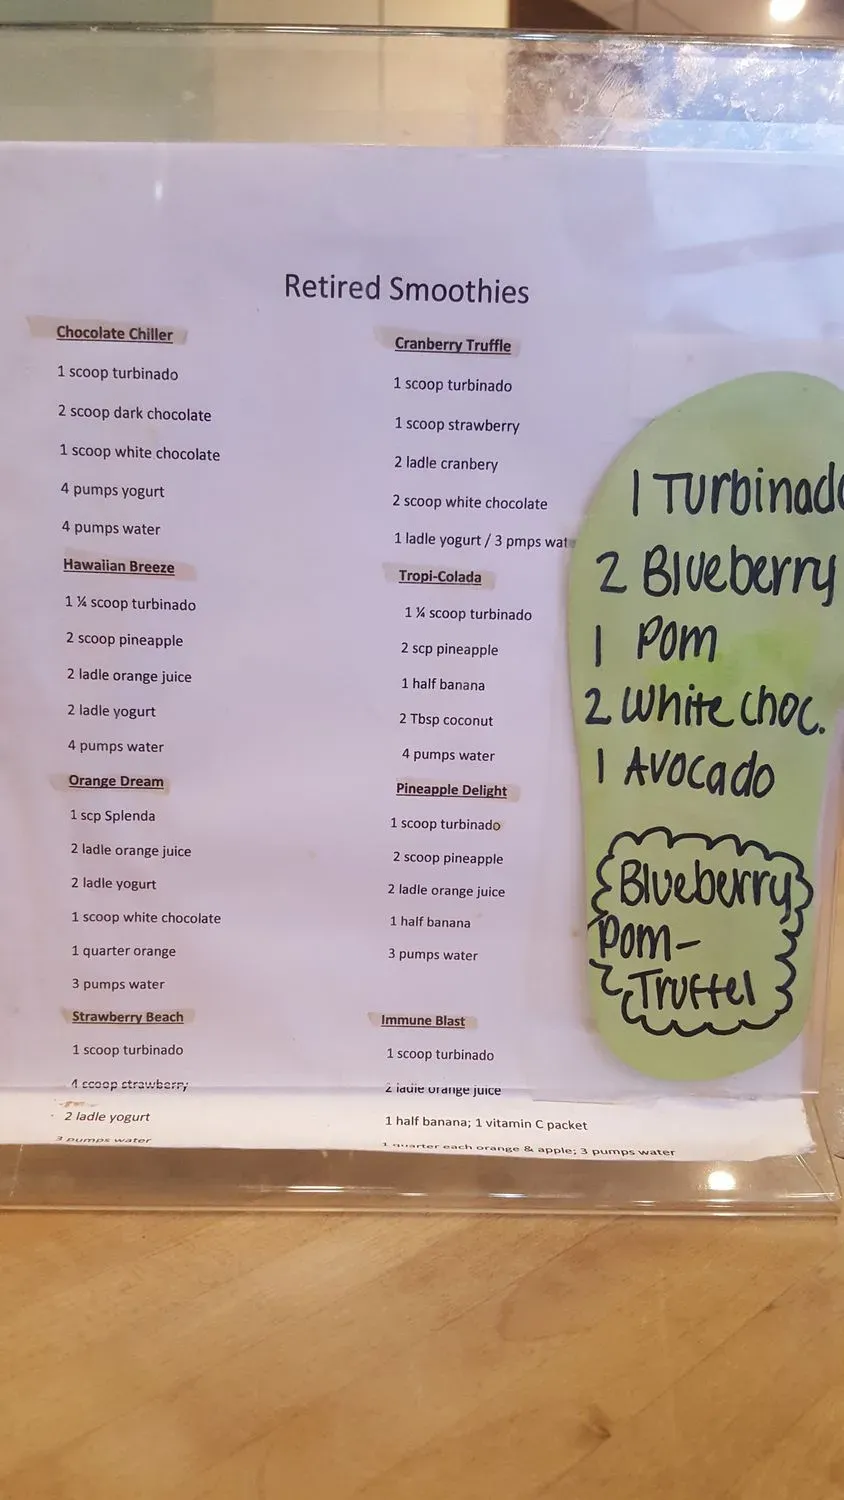 Retired Smoothies
Chocolate Chiller
1 scoop turbinado
2 scoop dark chocolate
1 scoop white chocolate
4 pumps yogurt
4 pumps water
Hawaiian Breeze
1 ¼ scoop turbinado
2 scoop pineapple
2 ladle orange juice
2 ladle yogurt
4 pumps water
Orange Dream
1 scp Splenda
2 ladle orange juice
2 ladle yogurt
1 scoop white chocolate
1 quarter orange
3 pumps water
Strawberry Beach
1 scoop turbinado
4 scoop strawberry
2 ladle yogurt
3 pumps water
Cranberry Truffle
1 scoop turbinado
1 scoop strawberry
2 ladle cranbery
2 scoop white chocolate
1 ladle yogurt / 3 pmps wat
Tropi-Colada
1 ¼ scoop turbinado
2 scp pineapple
1 half banana
2 Tbsp coconut
4 pumps water
Pineapple Delight
1 scoop turbinado
2 scoop pineapple
2 ladle orange juice
1 half banana
3 pumps water
Immune Blast
1 scoop turbinado
2 ladle orange juice
1 half banana; 1 vitamin C packet
1 quarter each orange & apple; 3 pumps water
1 Turbinado
2 Blueberry
1 Pom
2 White choc.
1 Avocado
Blueberry
Pom-
Truffel